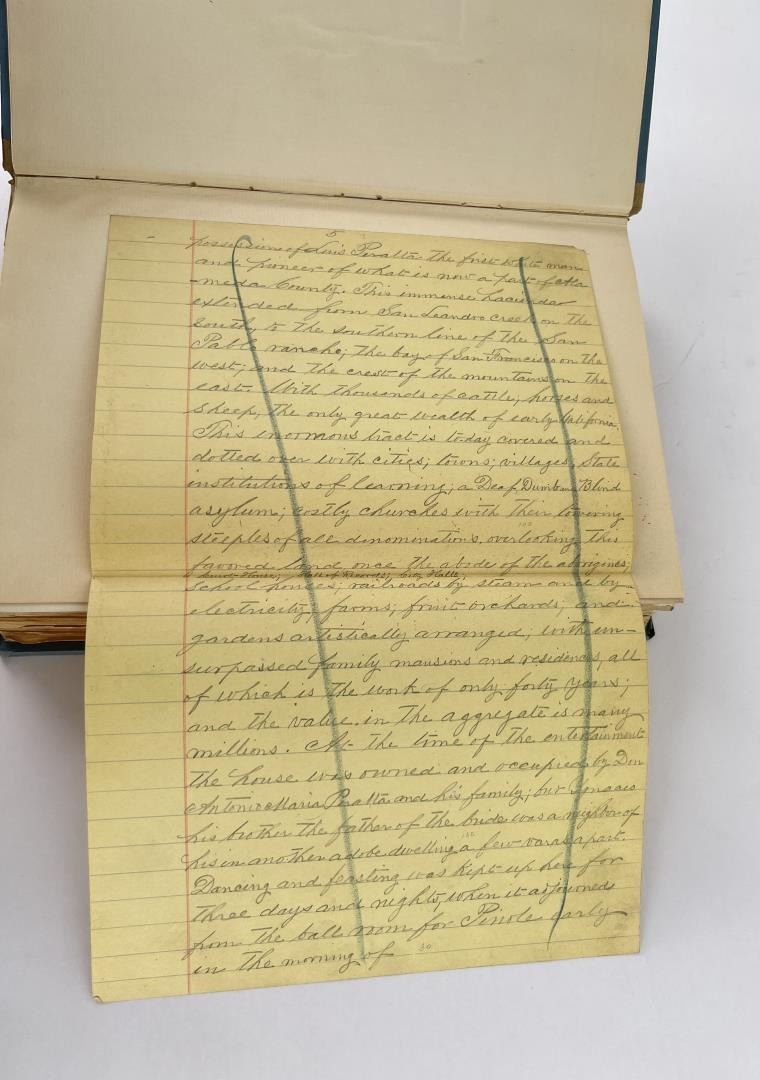 5
possession of Luis Peralta the first white man
and pioneer of what is now a part of Ala
-meda County. This immense hacienda
extended from San Leandro Creek on the
South, to the southern line of the San
Pablo rancho; the bay of San Francisco on the
west; and the crest of the mountains on the
east. With thousands of cattle, horses and
sheep, the only great wealth of early California.
This enormous tract is today covered and
dotted over with cities; towns; villages, State
institutions of learning; a Deaf, Dumb and Blind
asylum; costly churches with their towering
steeples of all denominations, overlooking this
favored land once the abode of the aborigines;
Court House; Hall of Records; City Halls;
school houses; railroads by steam and by
electricity; farms, fruit orchards, and
gardens artistically arranged; with un-
surpassed family mansions and residences, all
of which is the work of only forty years;
and the value in the aggregate is many
millions. At the time of the entertainment
the house was owned and occupied by Don
Antonio Maria Peralta and his family; but Ignacio
his brother the father of the bride was a neighbor of
his in another adobe dwelling a few varas apart.
Dancing and feasting was kept up here for
three days and nights, when it adjourned
from the ball room for Pinole early
in the morning of 30